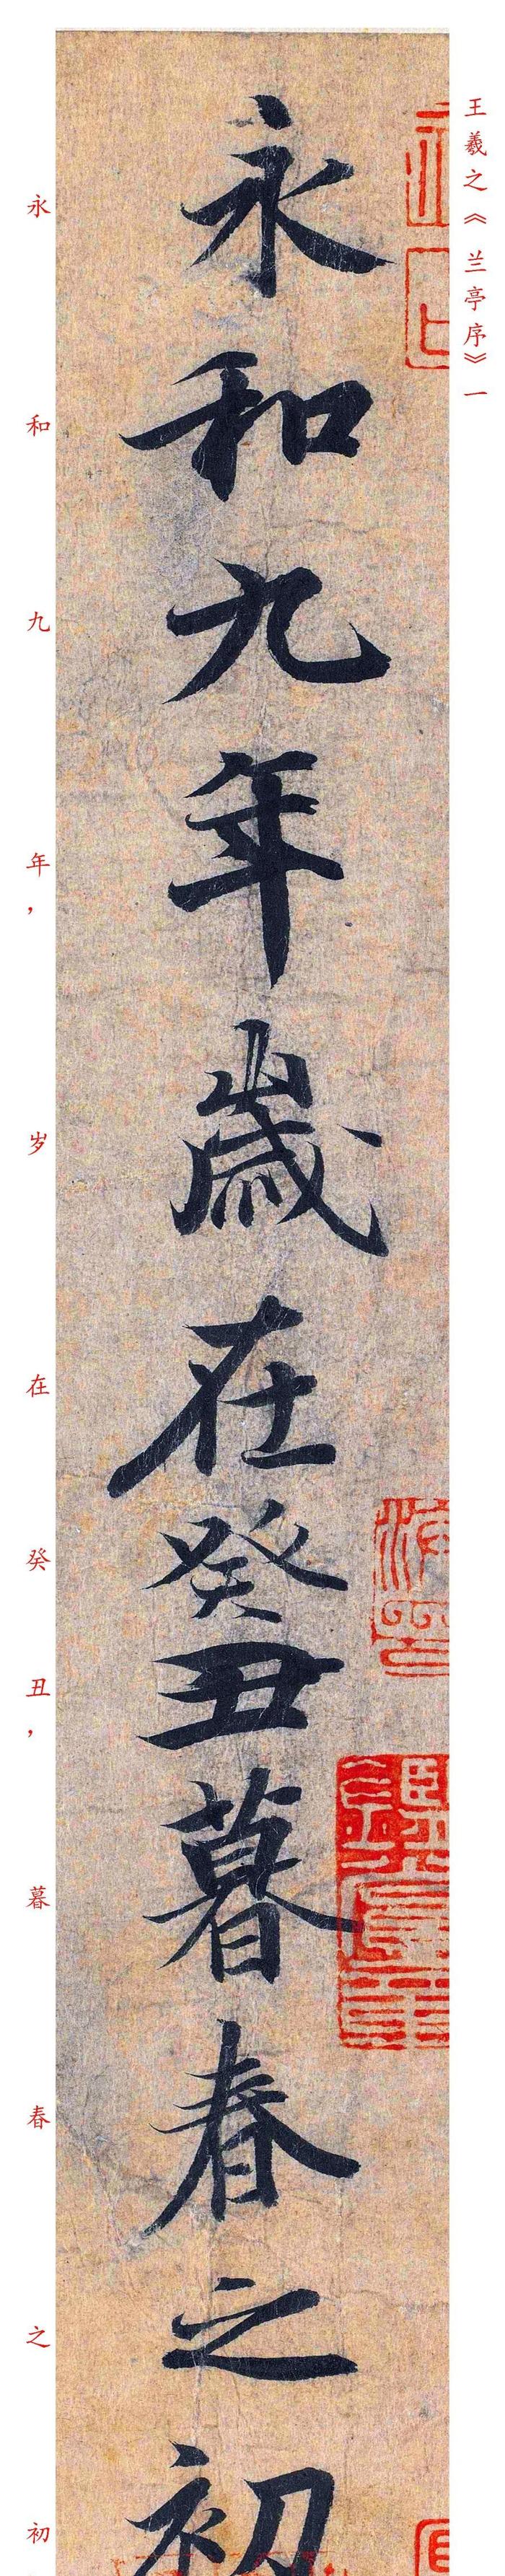 王羲之《兰亭序》一
永和九年歲在癸丑暮春之初
永和九年，岁在癸丑，暮春之初